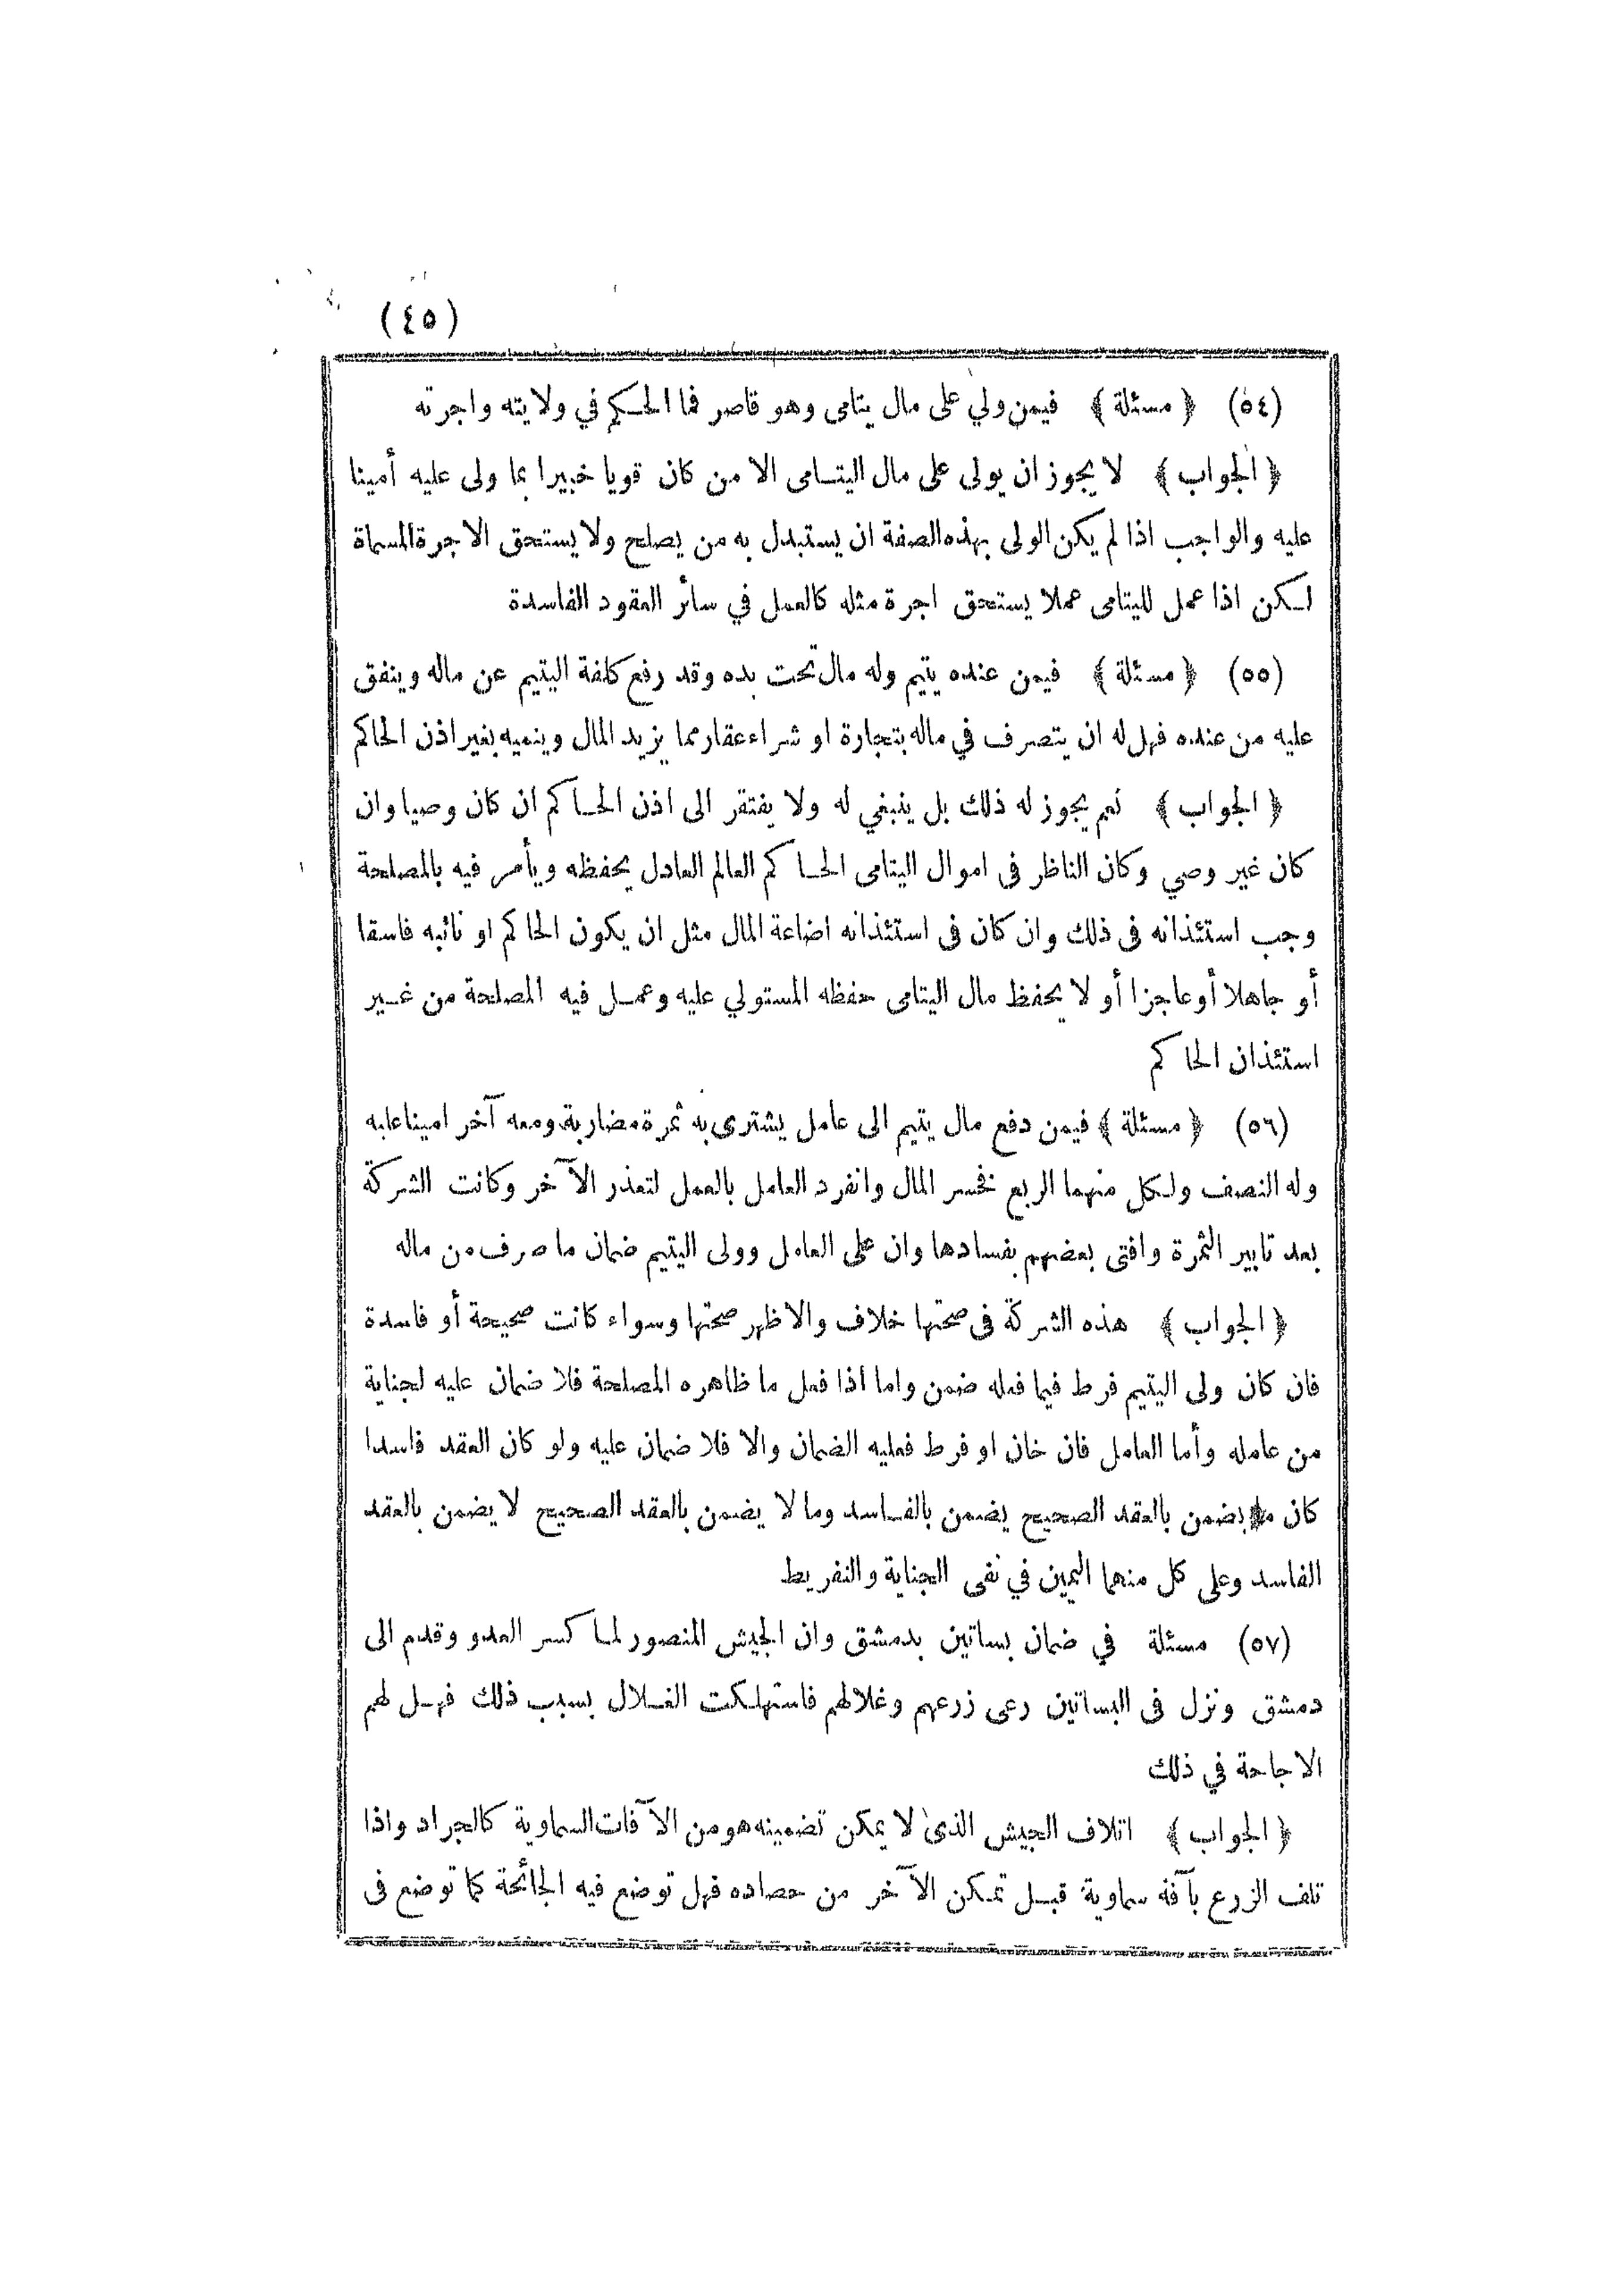 (٤٥)
(٥٤) ﴿ مسئلة ﴾ فيمن ولي على مال يتامى وهو قاصر فما الحكم في ولايته واجرته
﴿ الجواب ﴾ لا يجوز ان يولى على مال اليتامى الا من كان قويا خبيرا بما ولى عليه أمينا
عليه والواجب اذا لم يكن الولى بهذه الصفة ان يستبدل به من يصلح ولا يستحق الاجرة المسماة
لكن اذا عمل لليتامى عملا يستحق اجرة مثله كالعمل في سائر العقود الفاسدة
(٥٥) ﴿ مسئلة ﴾ فيمن عنده يتيم وله مال تحت يده وقد رفع كلفة اليتيم عن ماله وينفق
عليه من عنده فهل له ان يتصرف في ماله بتجارة او شراء عقار مما يزيد المال وينميه بغير اذن الحاكم
﴿ الجواب ﴾ نعم يجوز له ذلك بل ينبغي له ولا يفتقر الى اذن الحاكم ان كان وصيا وان
كان غير وصي وكان الناظر فى اموال اليتامى الحاكم العالم العادل يحفظه ويأمر فيه بالمصلحة
وجب استئذانه فى ذلك وان كان فى استئذانه اضاعة المال مثل ان يكون الحاكم او نائبه فاسقا
أو جاهلا أو عاجزا أو لا يحفظ مال اليتامى حفظه المستولي عليه وعمل فيه المصلحة من غير
استئذان الحاكم
(٥٦) ﴿ مسئلة ﴾ فيمن دفع مال يتيم الى عامل يشترى به ثمرة مضاربة ومعه آخر امينا عليه
وله النصف ولكل منهما الربع فخسر المال وانفرد العامل بالعمل لتعذر الآخر وكانت الشركة
بعد تابير الثمرة وافتى بعضهم بفسادها وان على العامل وولى اليتيم ضمان ما صرف من ماله
﴿ الجواب ﴾ هذه الشركة فى صحتها خلاف والاظهر صحتها وسواء كانت صحيحة أو فاسدة
فان كان ولى اليتيم فرط فيما فعله ضمن واما اذا فعل ما ظاهره المصلحة فلا ضمان عليه لجناية
من عامله وأما العامل فان خان او فرط فعليه الضمان والا فلا ضمان عليه ولو كان العقد فاسدا
كان ما يضمن بالعقد الصحيح يضمن بالفاسد وما لا يضمن بالعقد الصحيح لا يضمن بالعقد
الفاسد وعلى كل منهما اليمين في نفى الجناية والتفريط
(٥٧) مسئلة في ضمان بساتين بدمشق وان الجيش المنصور لما كسر العدو وقدم الى
دمشق ونزل فى البساتين رعى زرعهم وغلالهم فاستهلكت الغلال بسبب ذلك فهل لهم
الاجاحة في ذلك
﴿ الجواب ﴾ اتلاف الجيش الذى لا يمكن تضمينه هو من الآفات السماوية كالجراد واذا
تلف الزرع بآفة سماوية قبل تمكن الآخر من حصاده فهل توضع فيه الجائحة كما توضع فى